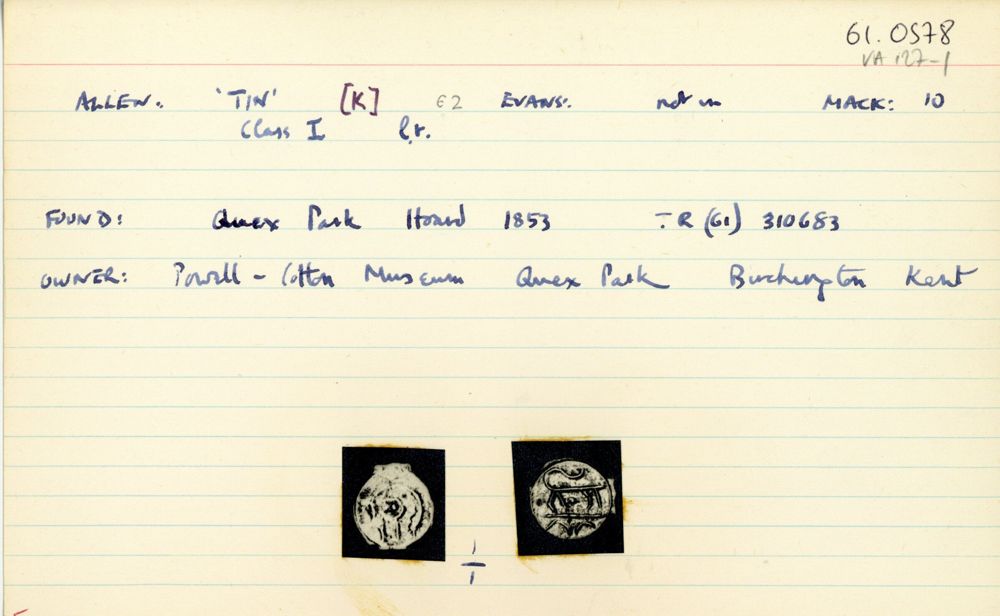 61.0578
VA 127-1
ALLEN. 'TIN' [K] E2 EVANS. not in MACK: 10
Class I l.r.
FOUND: Quex Park Hoard 1853 TR (61) 310683
OWNER: Powell-Cotton Museum Quex Park Birchington Kent
1
1